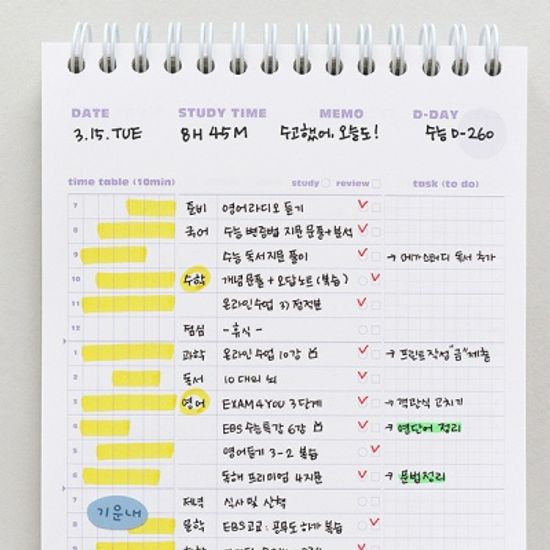 DATE STUDY TIME MEMO D-DAY
3.15.TUE 8H 45M 수고했어, 오늘도! 수능 D-260
time table (10min) study review task (to do)
7 준비 영어라디오 듣기
8 국어 수능 변증법 지문 문풀+분석
9 수능 독서지문 풀이 → 메가스터디 독서 추가
10 수학 개념문풀 + 오답노트 (복습)
11 온라인수업 3) 정적분
12 점심 -휴식-
1 과학 온라인 수업 10강 → 프린트작성 "금"제출
2 독서 10대의 뇌
3 영어 EXAM4YOU 3단계 → 객관식 고치기
4 EBS 수능특강 6강 → 영단어 정리
5 영어듣기 3-2 복습
6 독해 프리미엄 4지문 → 문법정리
7 저녁 식사 및 산책
기운내
8 문학 EBS고교: 공무도하가 복습
9 수학